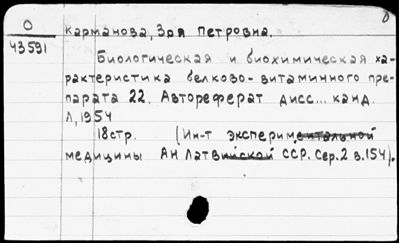 О
43591
8
Карманова, Зоя Петровна.
Биологическая и биохимическая ха-
рактеристика белково-витаминного пре-
парата 22. Автореферат дисс... канд.
Л, 1954
18стр. (Ин-т экспериментальной
медицины АН Латвийской ССР. Сер. 2 в. 154).